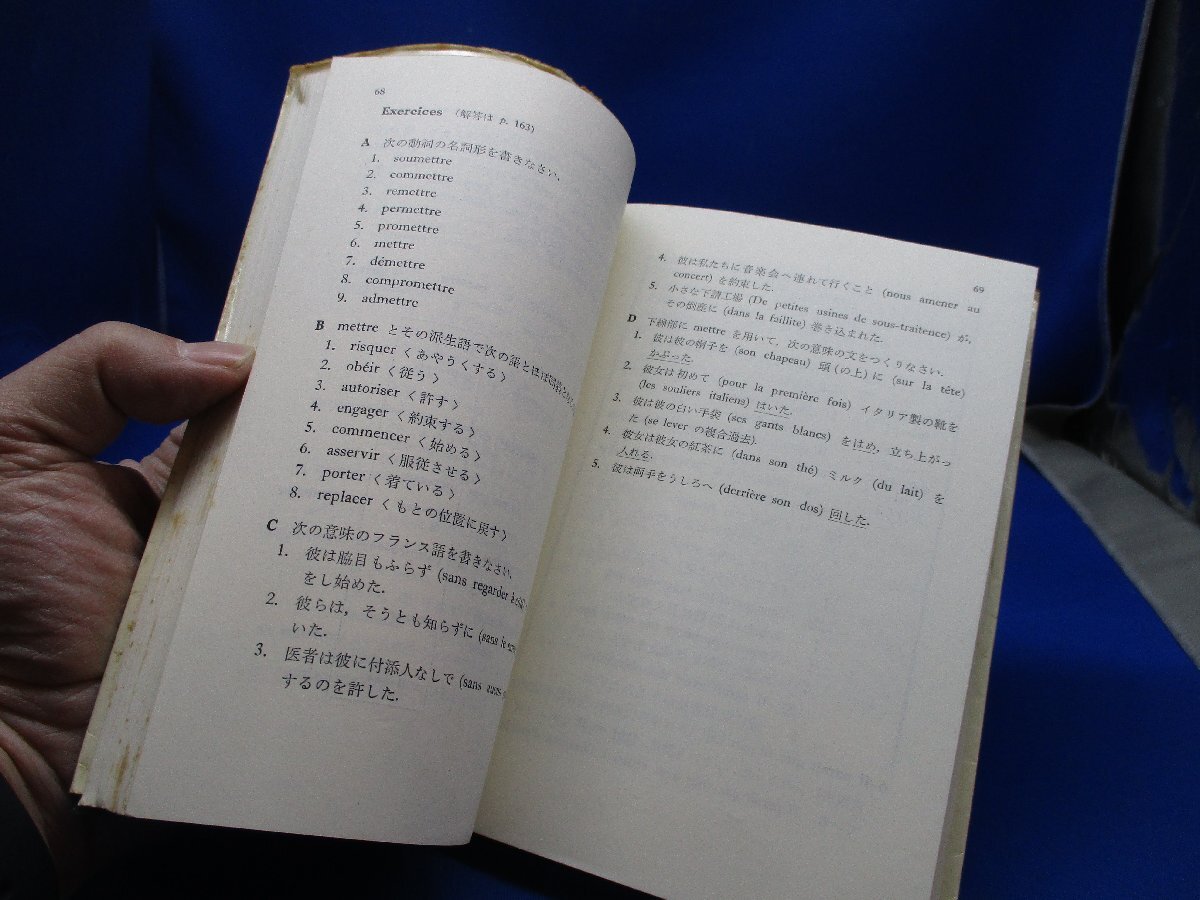 68
Exercices (解答は p. 163)
A 次の動詞の名詞形を書きなさい.
1. soumettre
2. commettre
3. remettre
4. permettre
5. promettre
6. mettre
7. démettre
8. compromettre
9. admettre
B mettre とその派生語で次の語とほぼ
1. risquer くあやうくする〉
2. obéir く従う〉
3. autoriser く許す〉
4. engager く約束する〉
5. commencer く始める〉
6. asservir く服従させる〉
7. porter く着ている〉
8. replacer くもとの位置に戻す〉
C 次の意味のフランス語を書きなさい.
1. 彼は脇目もふらず (sans regarder
をし始めた.
2. 彼らは, そうとも知らずに (sans le
いた.
3. 医者は彼に付添人なしで (sans
するのを許した.
69
4. 彼は私たちに音楽会へ連れて行くこと (nous amener au
concert) を約束した.
5. 小さな下請工場 (De petites usines de sous-traitence) が,
その倒産に (dans la faillite) 巻き込まれた.
D 下線部に mettre を用いて, 次の意味の文をつくりなさい.
1. 彼は彼の帽子を (son chapeau) 頭 (の上) に (sur la tête)
かぶった.
2. 彼女は初めて (pour la première fois) イタリア製の靴を
(les souliers italiens) はいた.
3. 彼は彼の白い手袋 (ses gants blancs) をはめ, 立ち上がっ
た (se lever の複合過去).
4. 彼女は彼女の紅茶に (dans son thé) ミルク (du lait) を
入れる.
5. 彼は両手をうしろへ (derrière son dos) 回した.